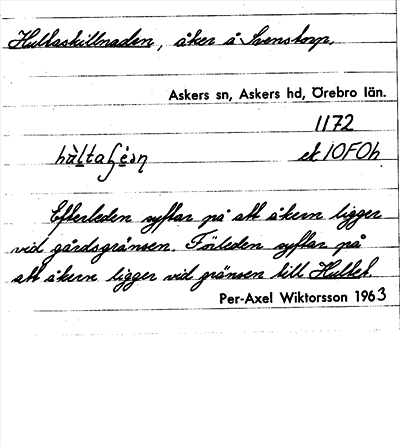 Hultaskillnaden, åker å Svenstorp.
Askers sn, Askers hd, Örebro län.
1172
ek 10F0h
Efterleden syftar på att åkern ligger
vid gårdsgränsen. Förleden syftar på
att åkern ligger vid gränsen till Hultet.
Per-Axel Wiktorsson 1963